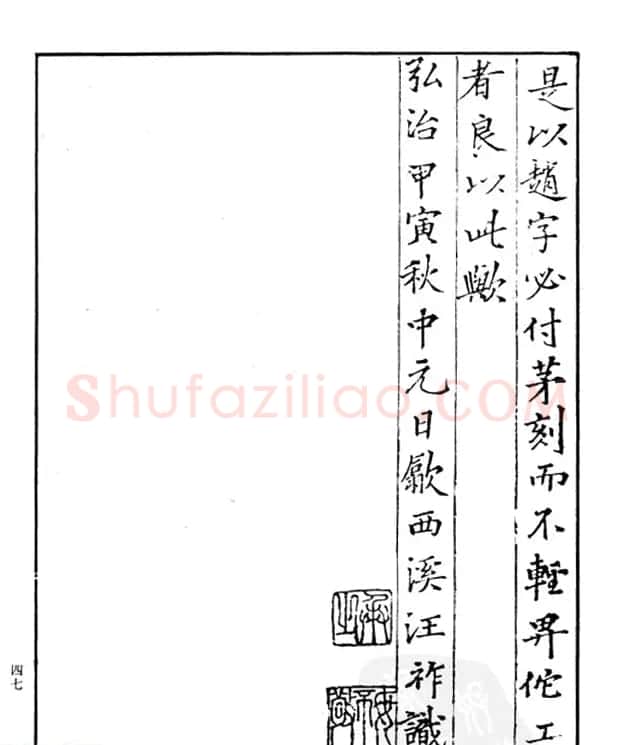 是以趙字必付茅刻而不輕畀佗工
者良以此歟
弘治甲寅秋中元日歙西溪汪祚識
四七
Shufaziliao.COM